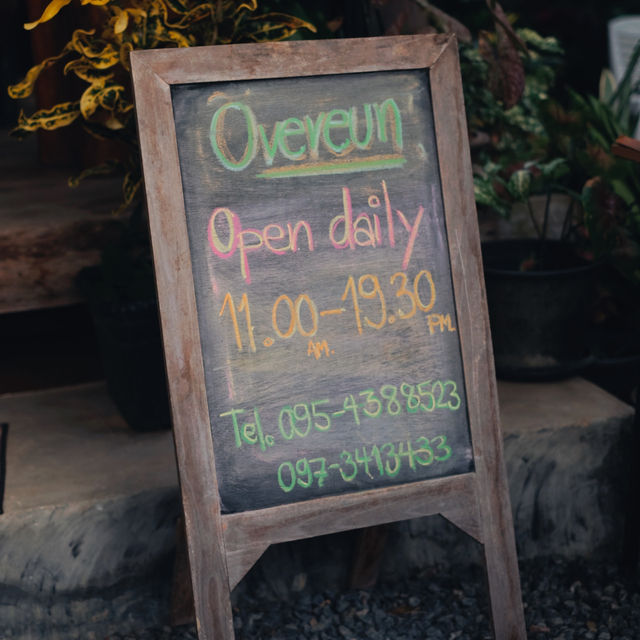 Övereun
Open daily
11.00-19.30
AM. PM.
Tel. 095-4388523
097-3413433